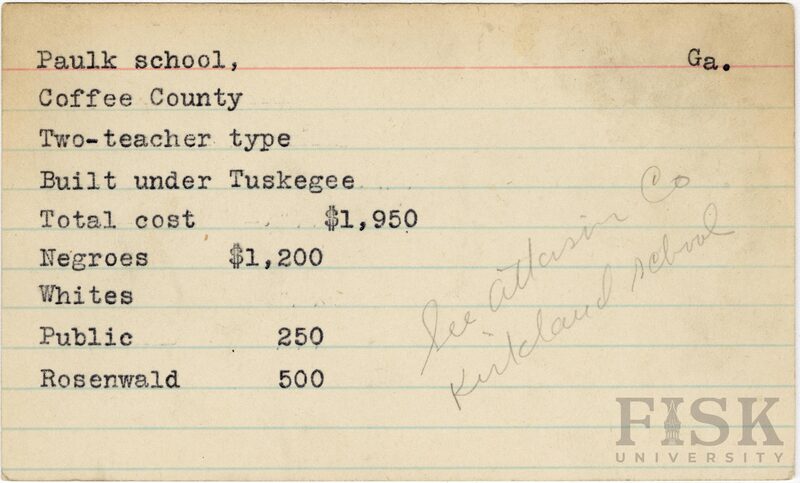 Paulk school, Ga.
Coffee County
Two-teacher type
Built under Tuskegee
Total cost $1,950
Negroes $1,200
Whites
Public 250
Rosenwald 500
See Atkinson Co
Kirkland school
FISK
UNIVERSITY